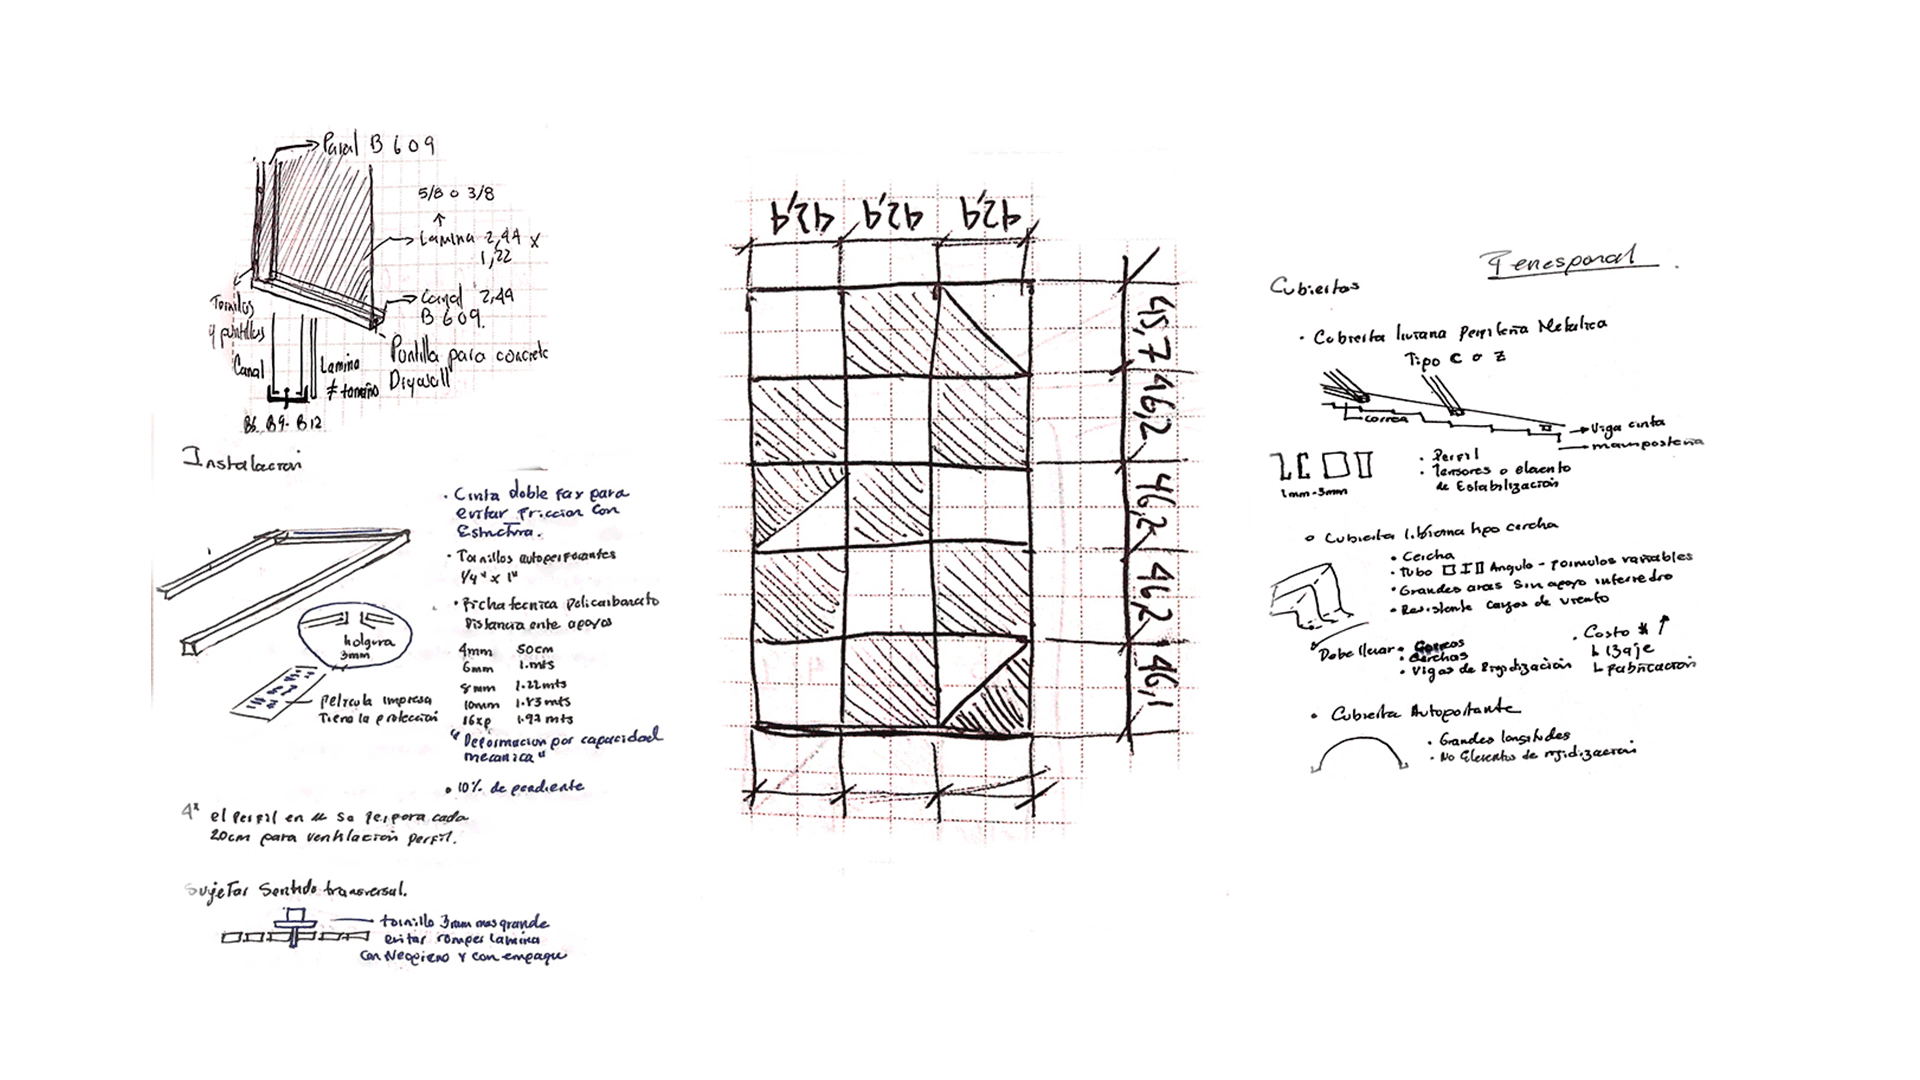 Paral B 609
5/8 o 3/8
Lamina 2,44 x
1,22
Canal 2,44
B 609.
Tornillos
y puntillas
Canal
Lamina
≠ tamaño
Puntilla para concreto
Drywall
B6 B9 B12
Instalacion
• Cinta doble fax para
evitar friccion con
Estructura.
• Tornillos autoperforantes
1/4" x 1"
• Ficha tecnica policarbonato
Distancia ente apoyos
4mm 50cm
6mm 1.mts
8mm 1.22mts
10mm 1.83mts
16xp 1.92 mts
"Deformacion por capacidad
mecanica"
• 10% de pendiente
holgura
3mm
pelicula impresa
Tiene la proteccion
el Perfil en u se perfora cada
20cm para ventilacion perfil.
Sujetar Sentido transversal.
tornillo 3mm mas grande
evitar romper lamina
con Neopreno y con empaque
42,9 42,9 42,9
45,7
46,2
46,2
46,2
46,1
Cubiertas
• Cubierta liviana perfileria Metalica
Tipo C o Z
correa
Viga cinta
mamposteria
1mm-3mm
• Perfil
• Tensores o elemento
de Estabilizacion
• Cubierta liviana tipo cercha
• Cercha
• Tubo Angulo - formulas variables
• Grandes areas sin apoyo intermedio
• Resistente cargas de viento
Debe llevar • Correas
• Cerchas
• Vigas de Rigidizacion
• Costo ↑
↳ Izaje
↳ Fabricacion
• Cubierta Autoportante
• Grandes longitudes
• No Elementos de rigidizacion